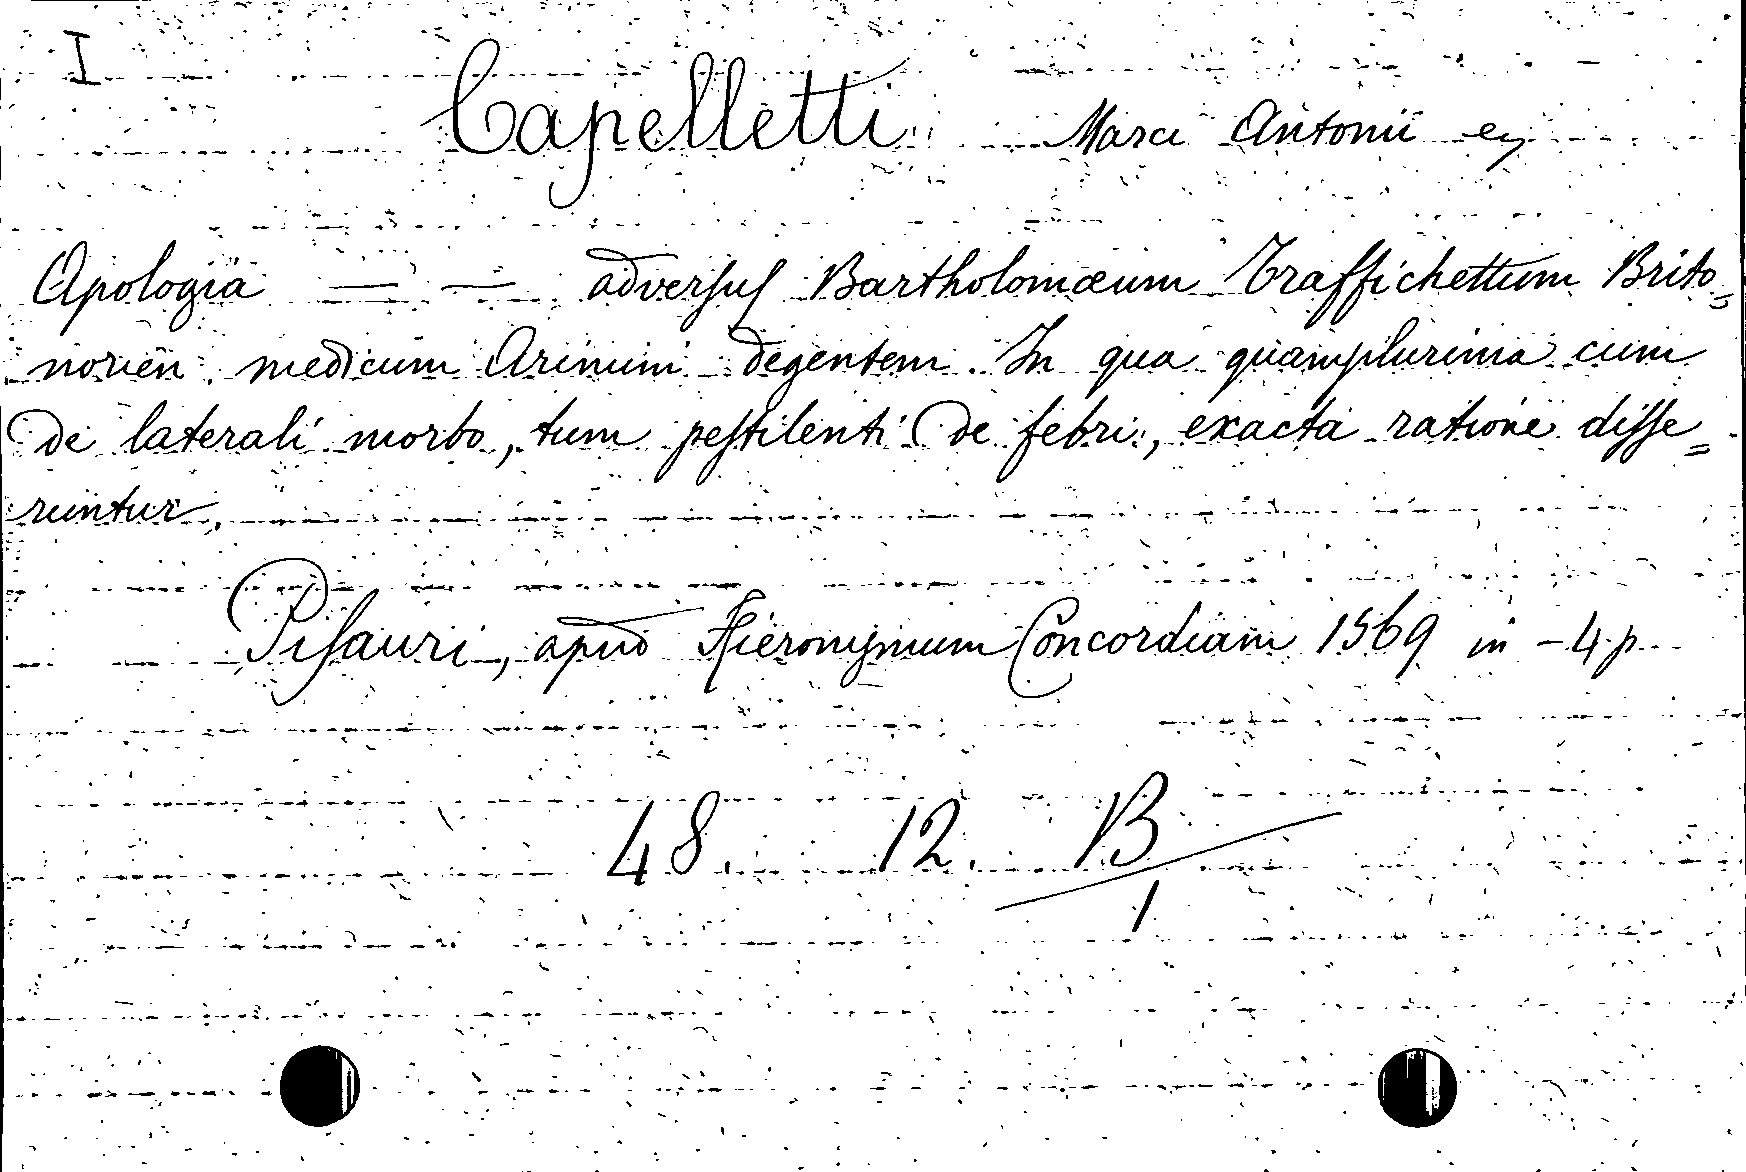 I
Capelletti Marci Antonii eq
Apologia — — adversus Bartholomæum Traffichettum Brito=
norien̄. medicum Arimini degentem. In qua quamplurima cum
de laterali morbo, tum pestilenti de febri, exacta ratione disse=
runtur.
Pisauri, apud Hieronymum Concordiam 1569 in-4 p.
48. 12. B/1